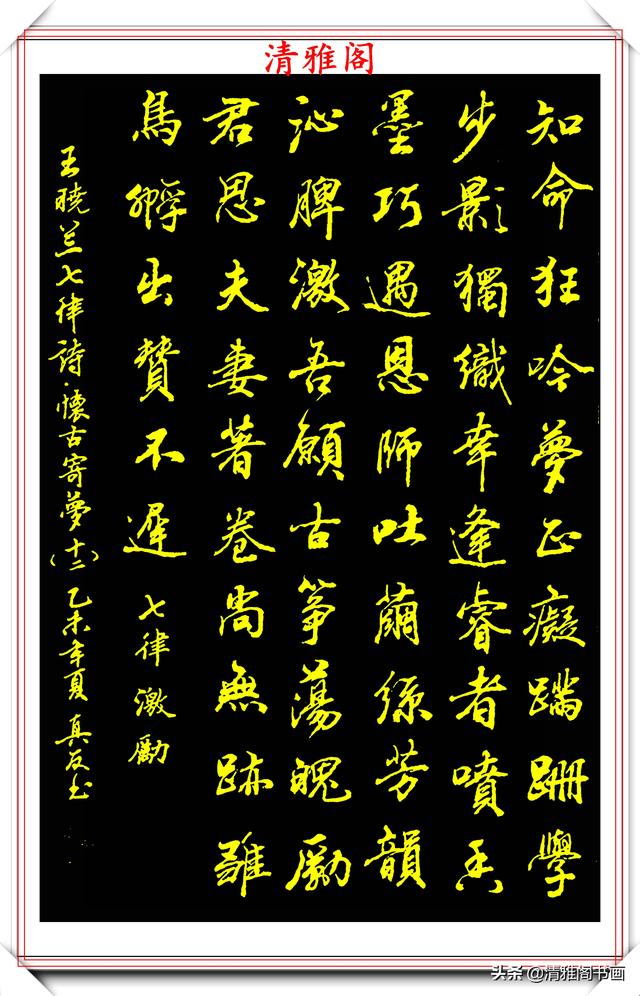 清雅阁
知命狂吟夢正癡蹣跚學
步影獨織幸逢睿者噴香
墨巧遇恩師吐繭絲芳韻
沁脾激吾願古箏蕩魄勵
君思夫妻著卷尚無跡雛
鳥孵出贊不遲 七律激勵
王曉兰七律詩·懷古寄夢(十二)乙未年夏 真友书
头条 @清雅阁书画